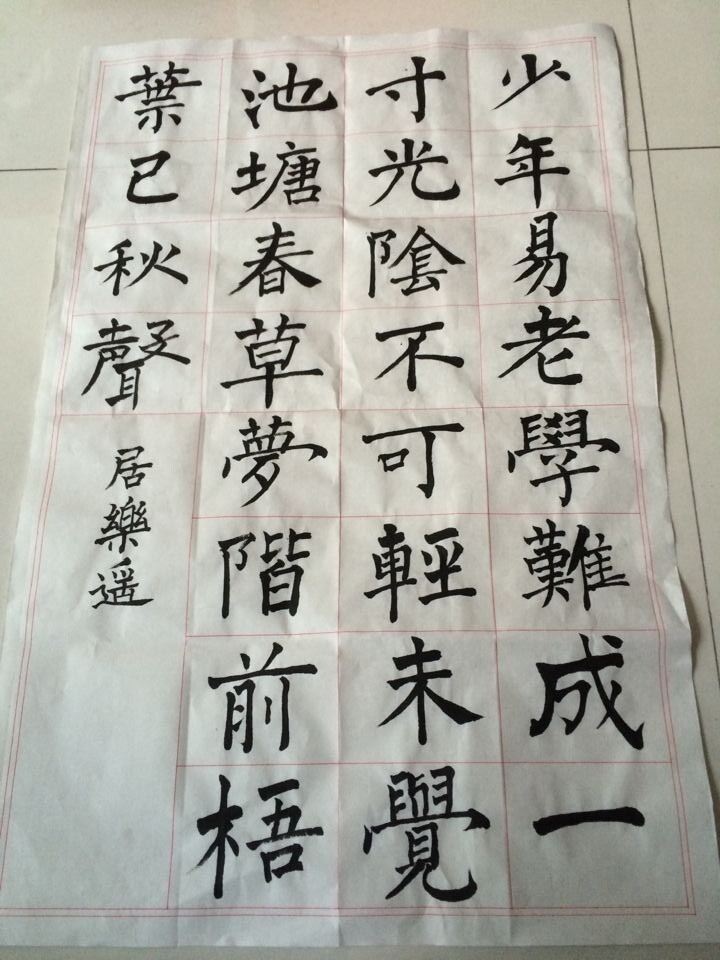 少年易老學難成一
寸光陰不可輕未覺
池塘春草夢階前梧
葉已秋聲
居樂遥